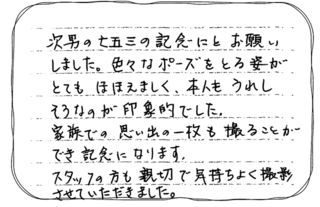 次男の七五三の記念にと お願い
しました。色々なポーズをとる姿が
とても ほほえましく、本人も うれし
そうなのが 印象的でした。
家族での 思い出の一枚も 撮ることが
でき 記念になります。
スタッフの方も 親切で 気持ちよく撮影
させていただきました。